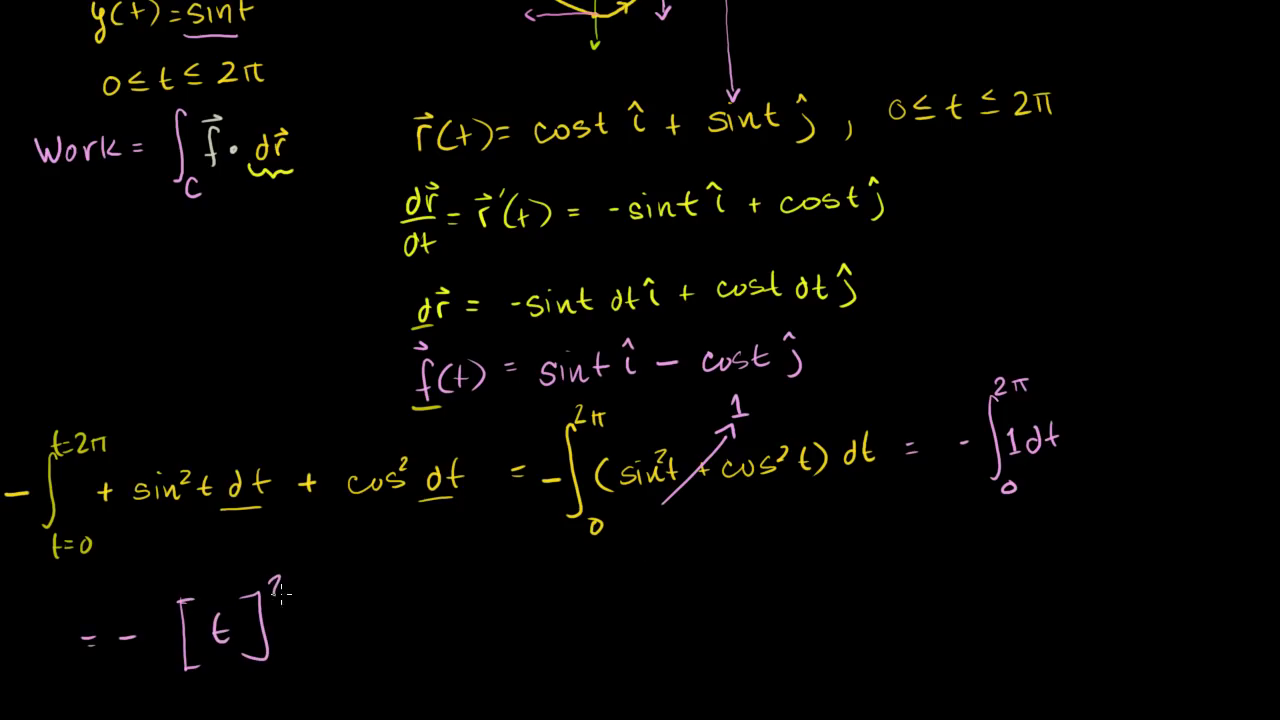 y(t) = sint
0 ≤ t ≤ 2π
Work = ∫_C f⃗ · dr⃗
r⃗(t) = cost î + sint ĵ , 0 ≤ t ≤ 2π
dr⃗/dt = r⃗'(t) = -sint î + cost ĵ
dr⃗ = -sint dt î + cost dt ĵ
f⃗(t) = sint î − cost ĵ
1
− ∫_{t=0}^{t=2π} + sin²t dt + cos² dt = − ∫_0^{2π} (sin²t + cos²t) dt = - ∫_0^{2π} 1 dt
= − [t]